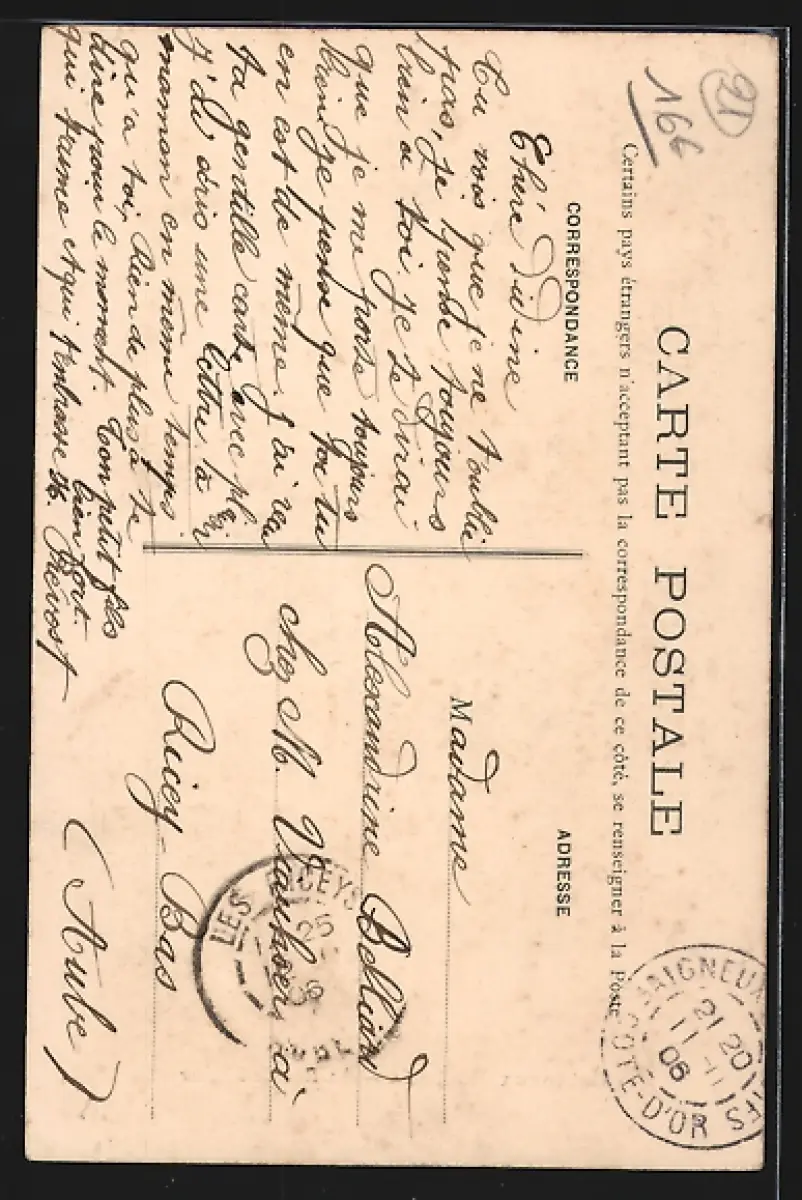 21
166
CARTE POSTALE
Certains pays étrangers n'acceptant pas la correspondance de ce côté, se renseigner à la Poste
CORRESPONDANCE
Chère Didine
Tu vois que je ne t'oublie
pas, je pense toujours
bien a toi. je te dirai
que je me porte toujours
bien je pense que toi tu
en est de même. J'ai reçu
ta gentille carte avec plaisir
J'
une lettre à
maman en même temps
qu'a toi, Rien de plus a te
dire pour le moment. Ton petit fils
qui t'aime et qui t'embrasse bien fort.
Prévost
ADRESSE
Madame
Alexandrine Belliard
chez M.
à
Ricey-Bas
(Aube)
BAIGNEUX
21 20
11 -11
06
COTE-D'OR
LES RICEYS
25
06
AUBE